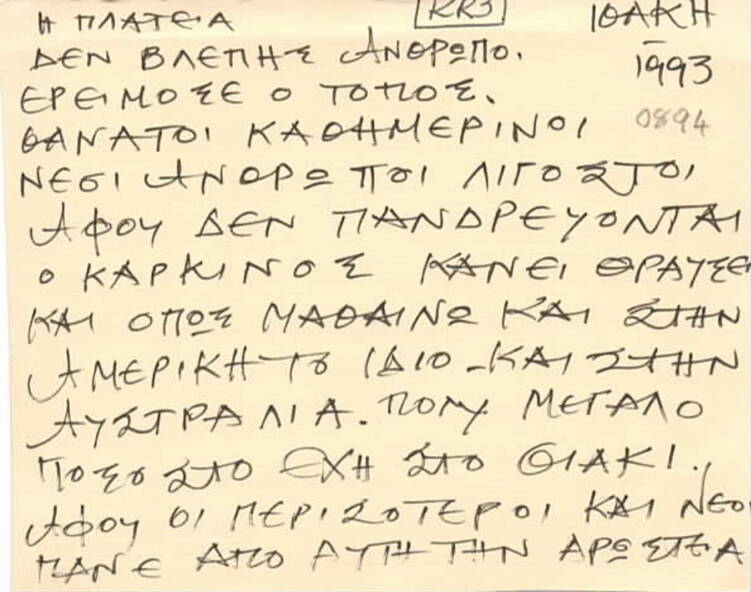 Η ΠΛΑΤΕΙΑ RR3 ΙΘΑΚΗ
ΔΕΝ ΒΛΕΠΗΣ ΑΝΘΡΩΠΟ. 1993
ΕΡΕΙΜΟΣΕ Ο ΤΟΠΟΣ.
ΘΑΝΑΤΟΙ ΚΑΘΗΜΕΡΙΝΟΙ 0894
ΝΕΣΙ ΑΝΘΡΩΠΟΙ ΛΙΓΟΣΤΟΙ
ΑΦΟΥ ΔΕΝ ΠΑΝΔΡΕΥΟΝΤΑΙ
Ο ΚΑΡΚΙΝΟΣ ΚΑΝΕΙ ΘΡΑΥΣΕΙ
ΚΑΙ ΟΠΩΣ ΜΑΘΑΙΝΩ ΚΑΙ ΣΤΗΝ
ΑΜΕΡΙΚΗ ΤΟ ΙΔΙΟ - ΚΑΙ ΣΤΗΝ
ΑΥΣΤΡΑΛΙΑ. ΠΟΛΥ ΜΕΓΑΛΟ
ΠΟΣΟΣΤΟ ΕΧΗ ΣΤΟ ΘΙΑΚΙ.
ΑΦΟΥ ΟΙ ΠΕΡΙΣΟΤΕΡΟΙ ΚΑΙ ΝΕΟΙ
ΠΑΝΕ ΑΠΟ ΑΥΤΗ ΤΗΝ ΑΡΩΣΤΕΙΑ